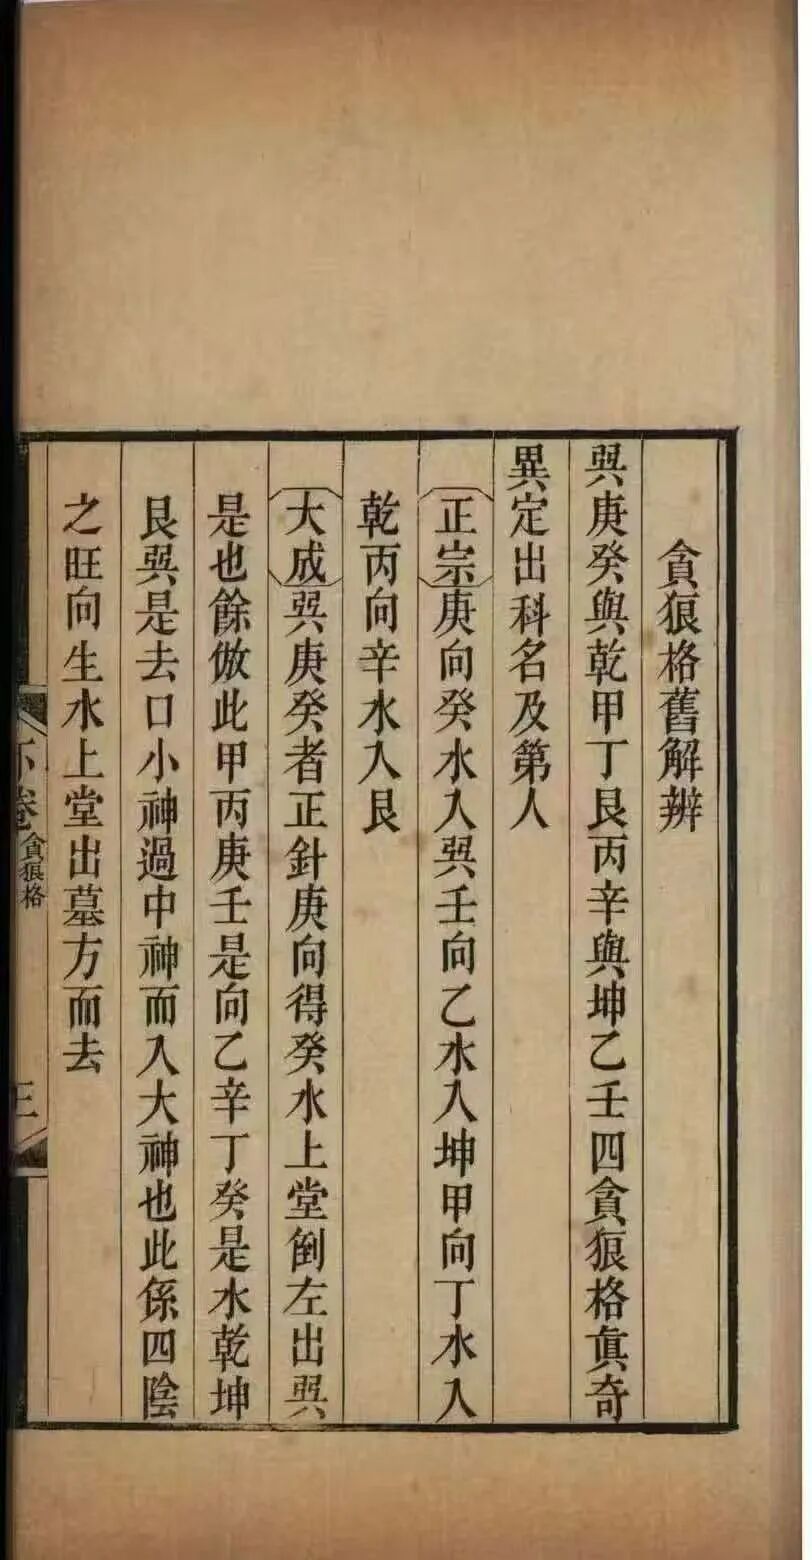 貪狼格舊解辨
巽庚癸與乾甲丁艮丙辛與坤乙壬四貪狼格眞奇
異定出科名及第人
正宗庚向癸水入巽壬向乙水入坤甲向丁水入
乾丙向辛水入艮
大成巽庚癸者正針庚向得癸水上堂倒左出巽
是也餘倣此甲丙庚壬是向乙辛丁癸是水乾坤
艮巽是去口小神過中神而入大神也此係四陰
之旺向生水上堂出墓方而去
下卷
貪狼格